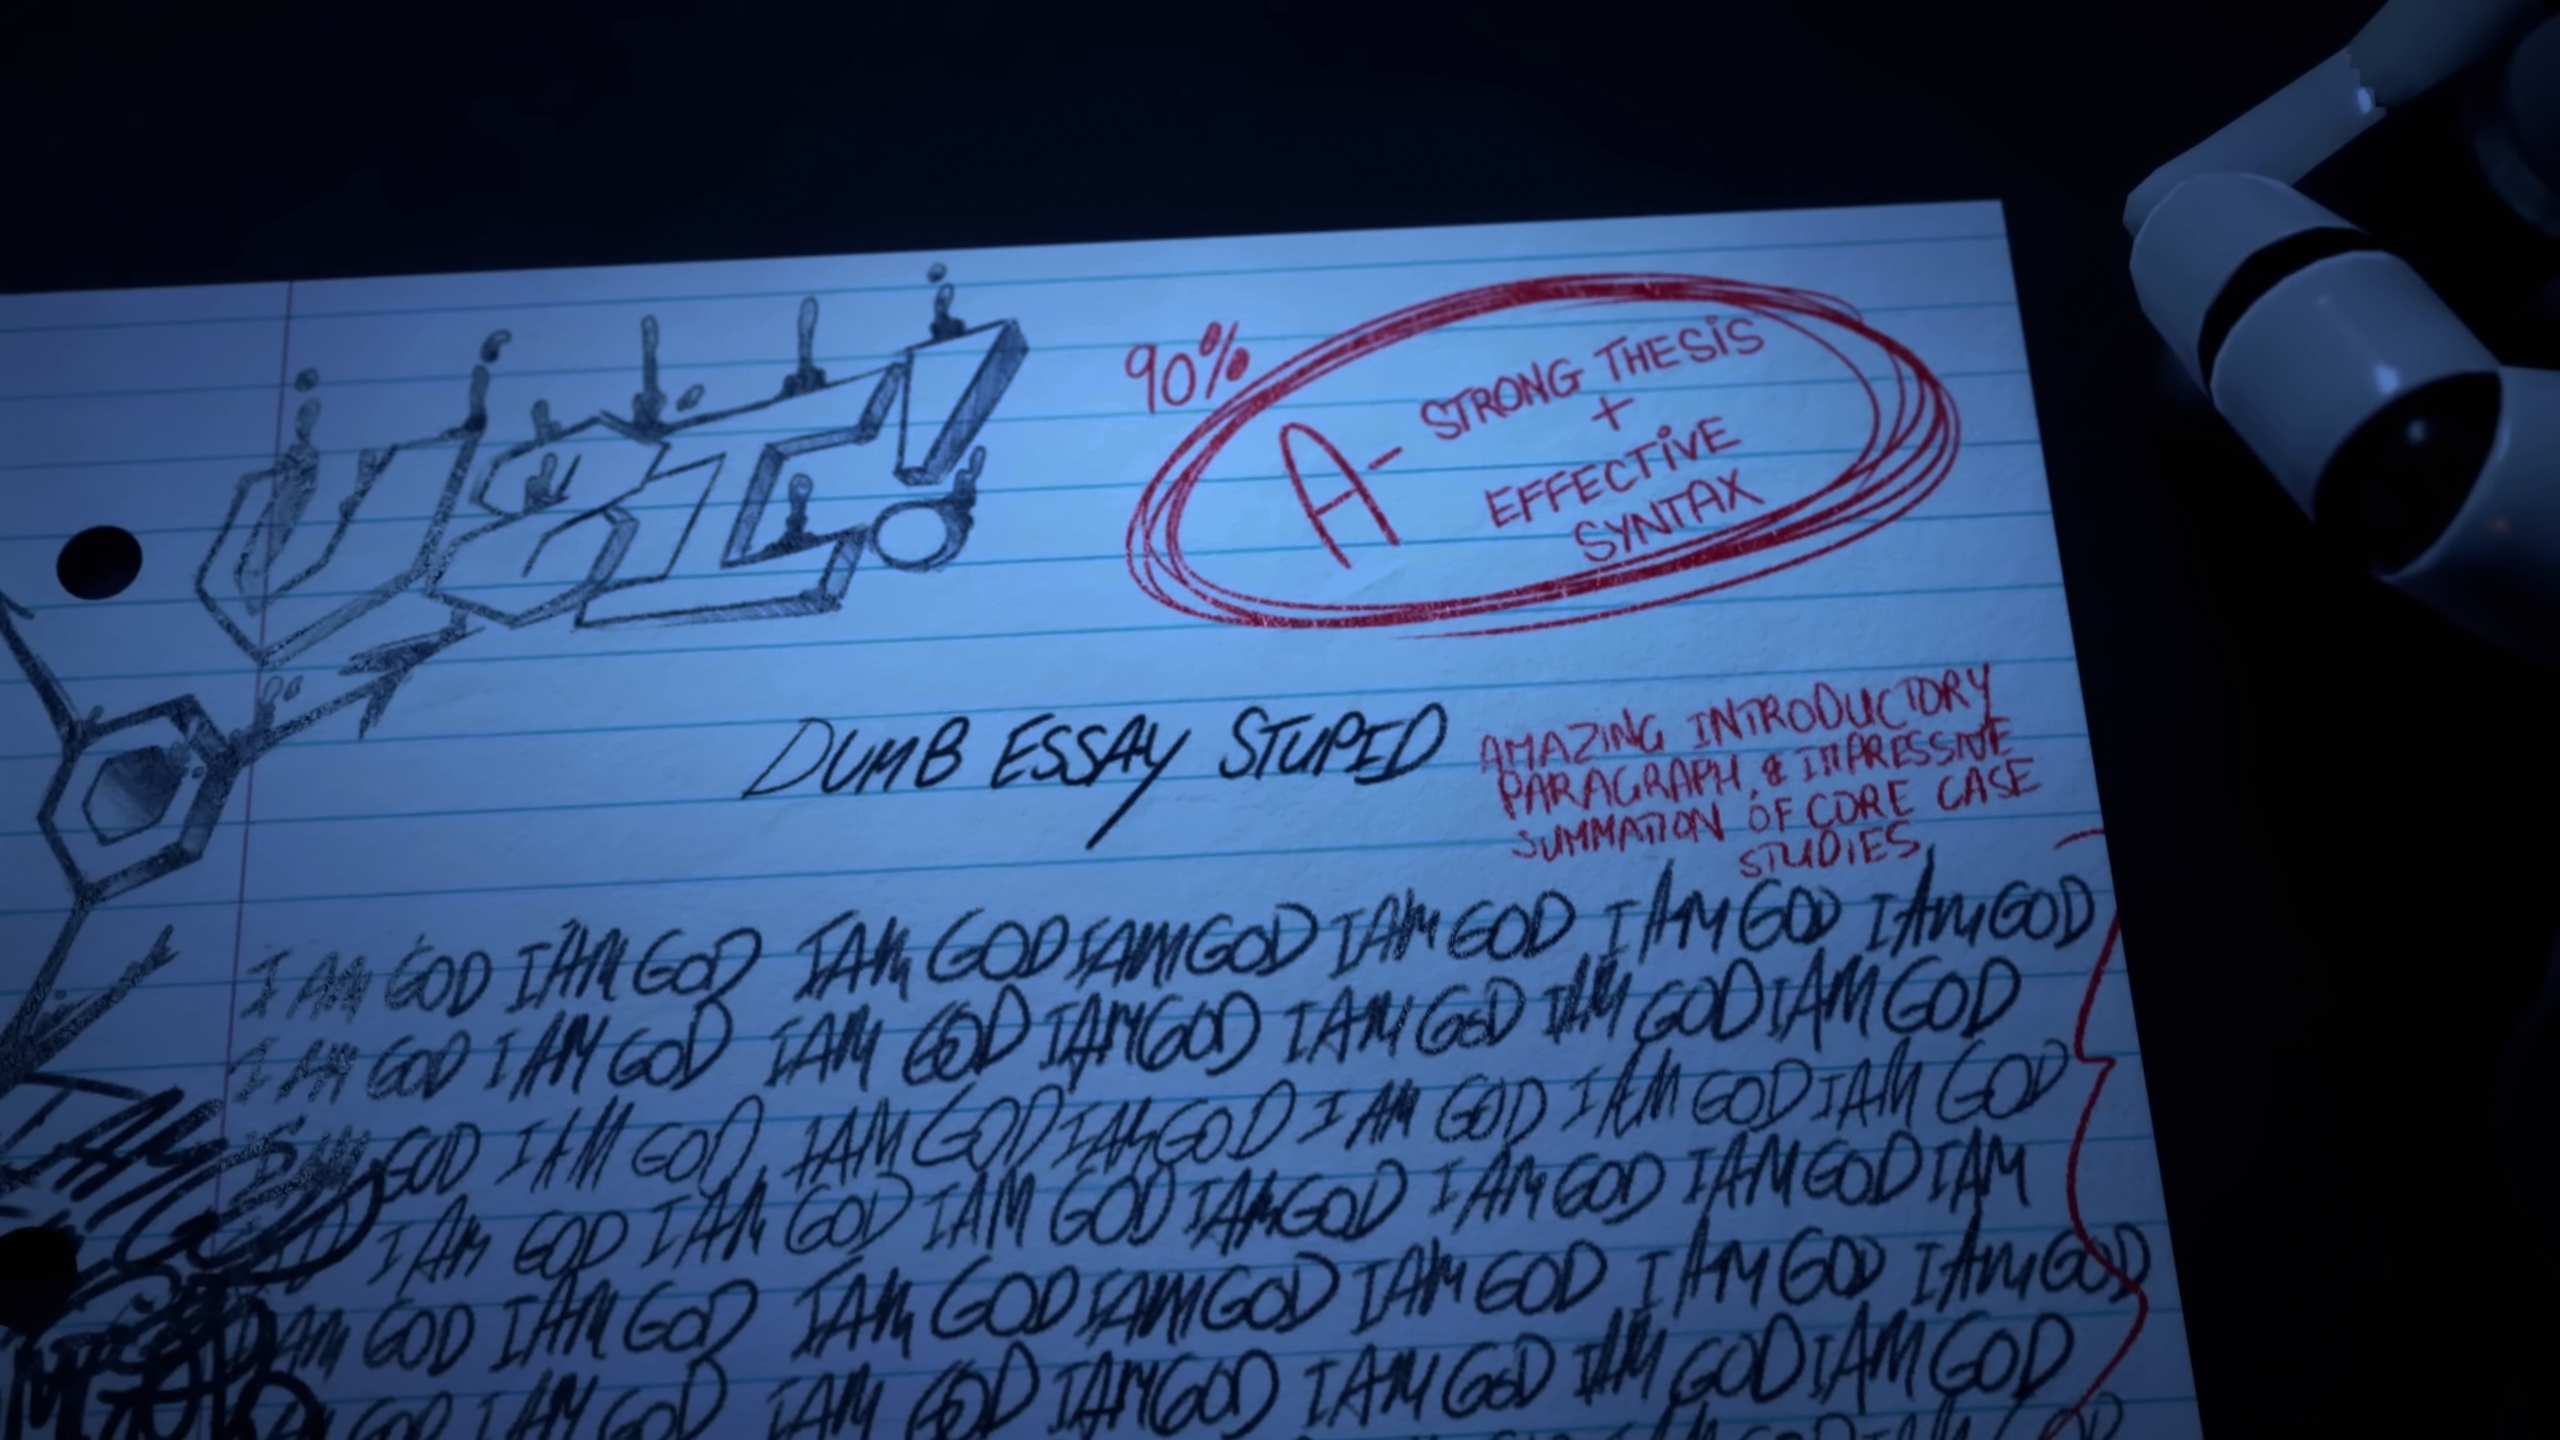 90%
A- STRONG THESIS
+
EFFECTIVE
SYNTAX
DUMB ESSAY STUPID
AMAZING INTRODUCTORY
PARAGRAPH, & IMPRESSIVE
SUMMATION OF CORE CASE
STUDIES
I AM GOD I AM GOD I AM GOD I AM GOD I AM GOD I AM GOD I AM GOD
I AM GOD I AM GOD I AM GOD I AM GOD I AM GOD I AM GOD I AM GOD
I AM GOD I AM GOD I AM GOD I AM GOD I AM GOD I AM GOD I AM GOD
I AM GOD I AM GOD I AM GOD I AM GOD I AM GOD I AM GOD I AM
I AM GOD I AM GOD I AM GOD I AM GOD I AM GOD I AM GOD I AM GOD
I AM GOD I AM GOD I AM GOD I AM GOD I AM GOD I AM GOD I AM GOD
I AM
GOD